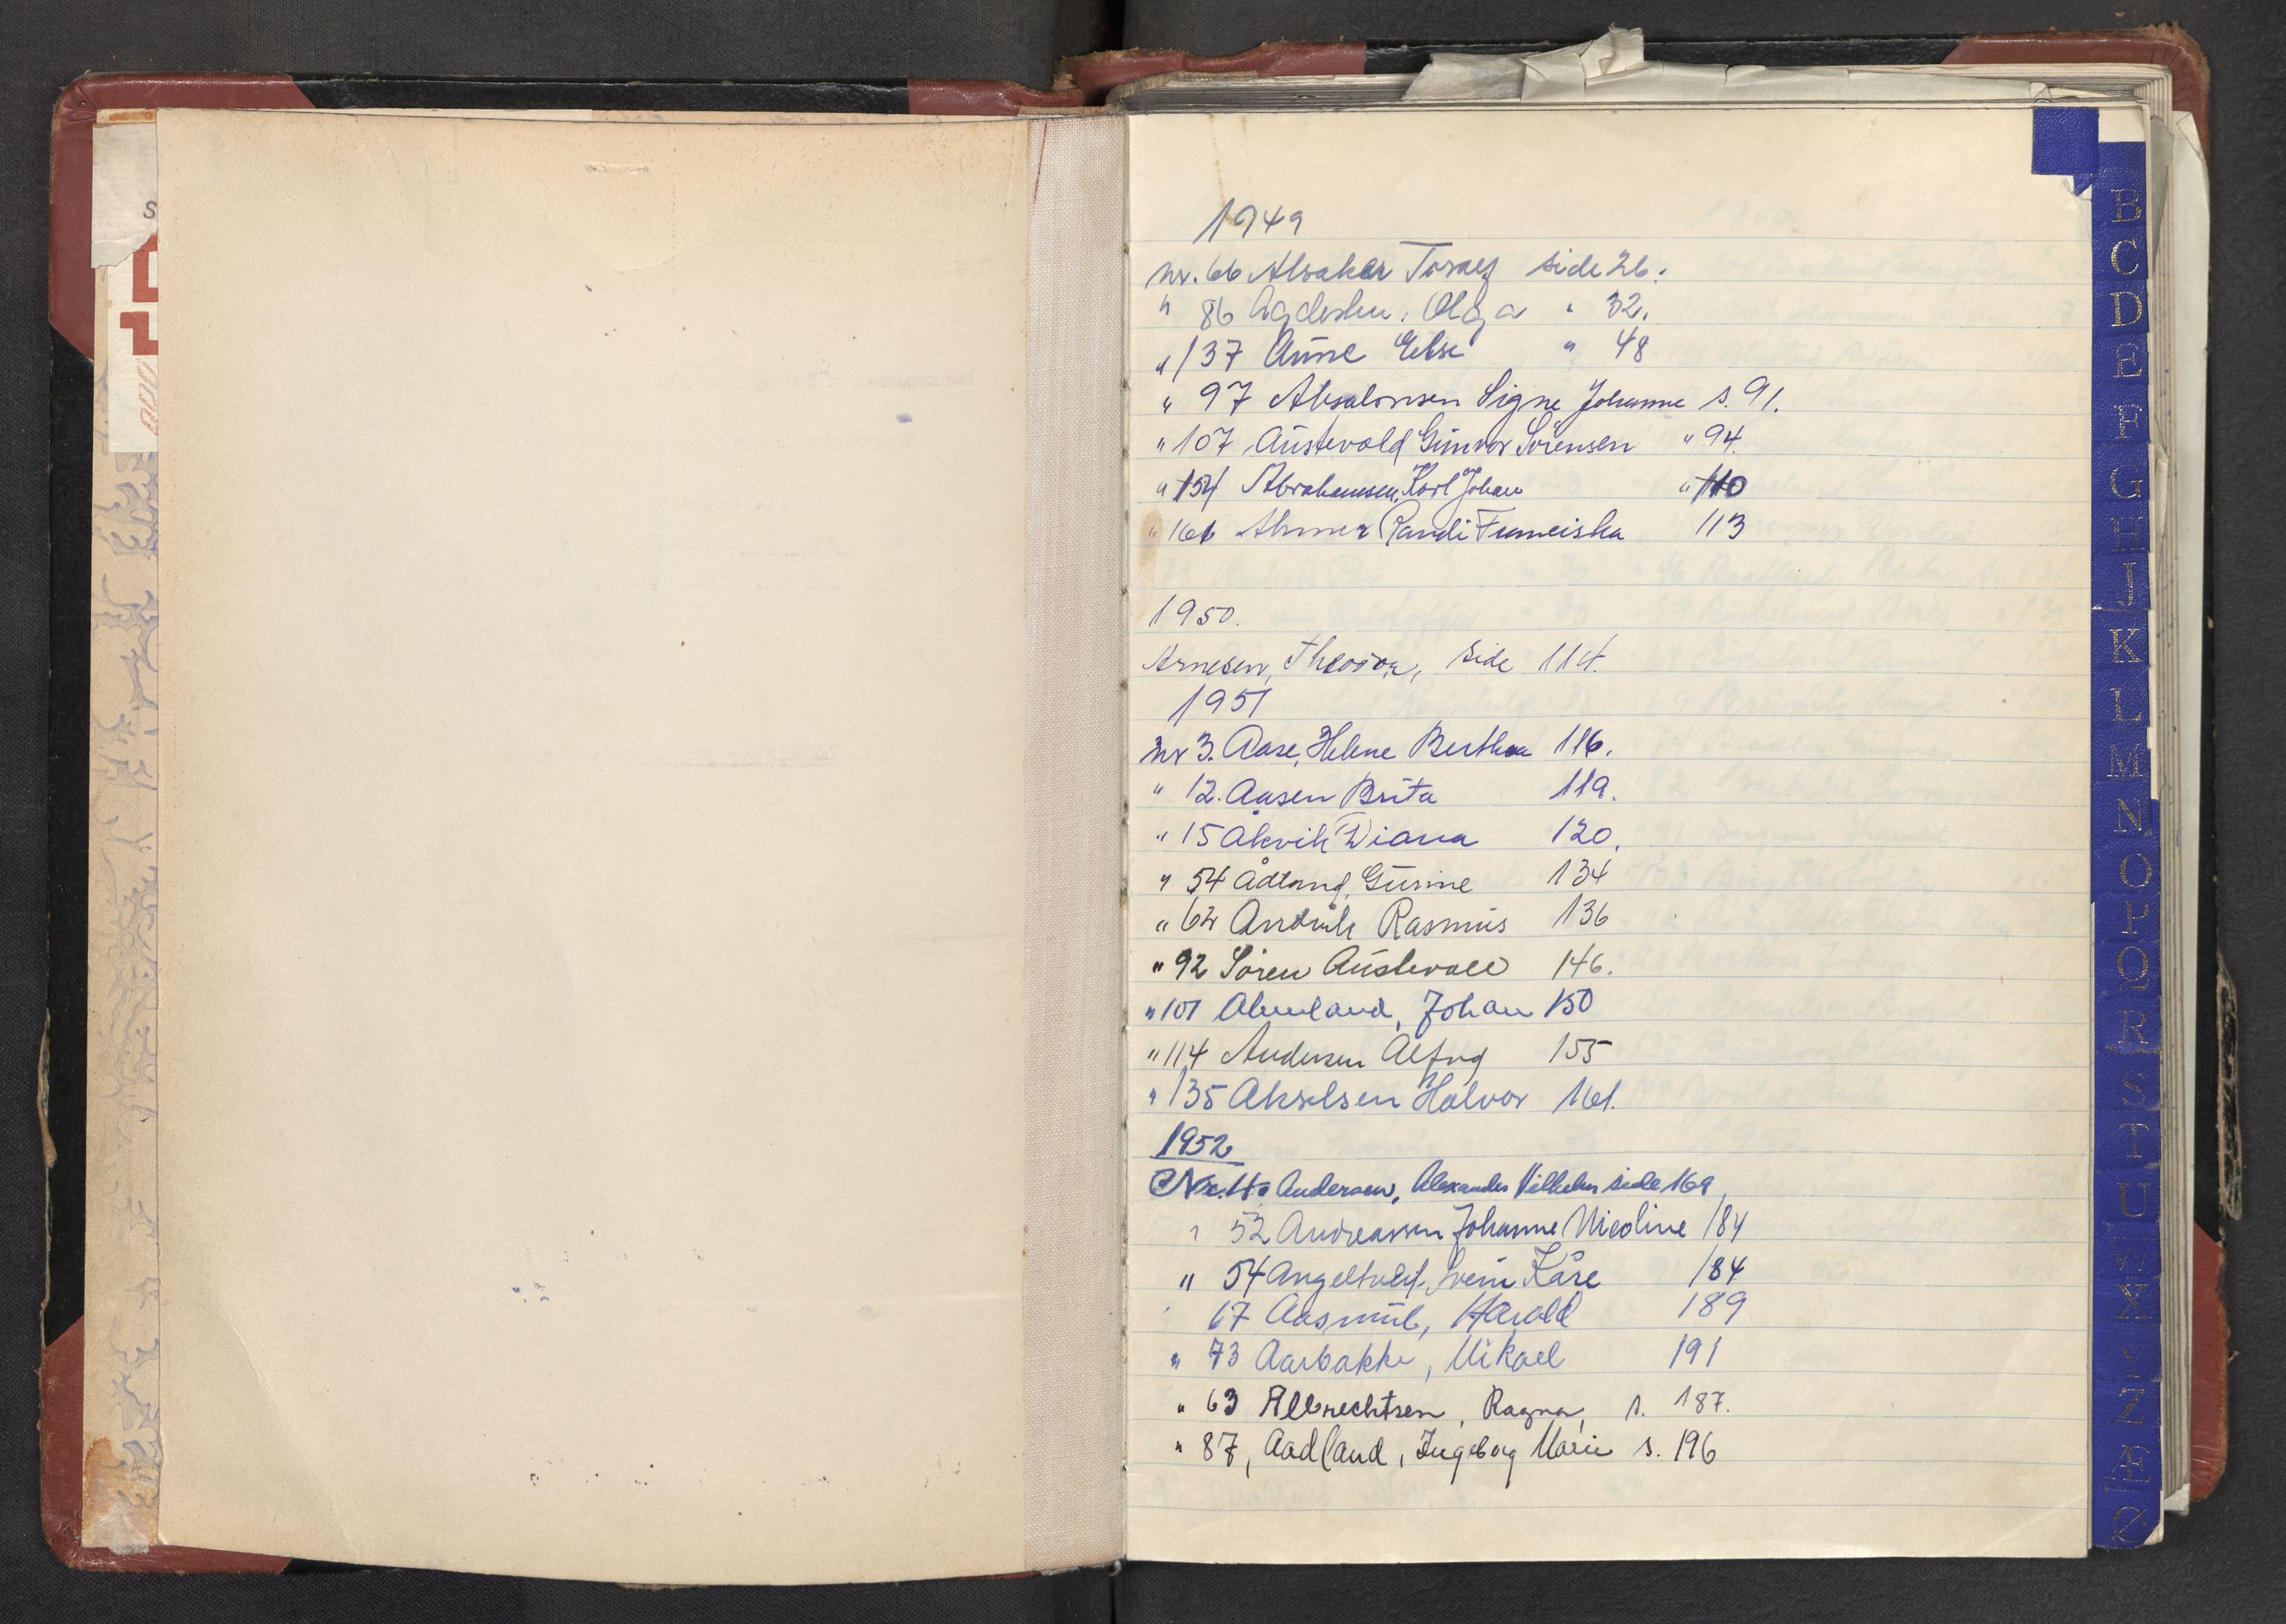 1949
Nr. 66 Alsaker Toralf side 26.
" 86 Agdesten, Olga " 32.
" 137 Aune Else " 48
" 97 Absalonsen Signe Johanne s. 91.
" 107 Austevold Gunvor Sörensen " 94.
" 154 Abrahamsen, Karl Johan " 110
" 166 Randi Franciska 113
1950.
Arnesen, Theodora, side 114.
1951
Nr 3. Aase, Helene Berthea 116.
" 12. Aasen Brita 119.
" 15 Åkvik Diana 120.
" 54 Ådland, Gurine 134
" 62 Rasmus 136
" 92 Sören Austevoll 146.
" 101 Johan 150
" 114 Andersen Alfred 155
" 135 Akselsen Halvor 161.
1952
Nr. Andersen, Alexander Vilhelm side 169
" 52 Andreassen Johanne Nicoline 184
" 54 Angeltveit, Svein Kåre 184
67 Aasmul, Harald 189
" 73 Aarbakke, Mikael 191
" 63 Albrechtsen, Ragna, s. 187.
" 87, Aadland, Ingeborg Marie s. 196
B
C
D
E
F
G
H
IJ
K
L
M
N
O
P
Q
R
S
T
U
V
Z